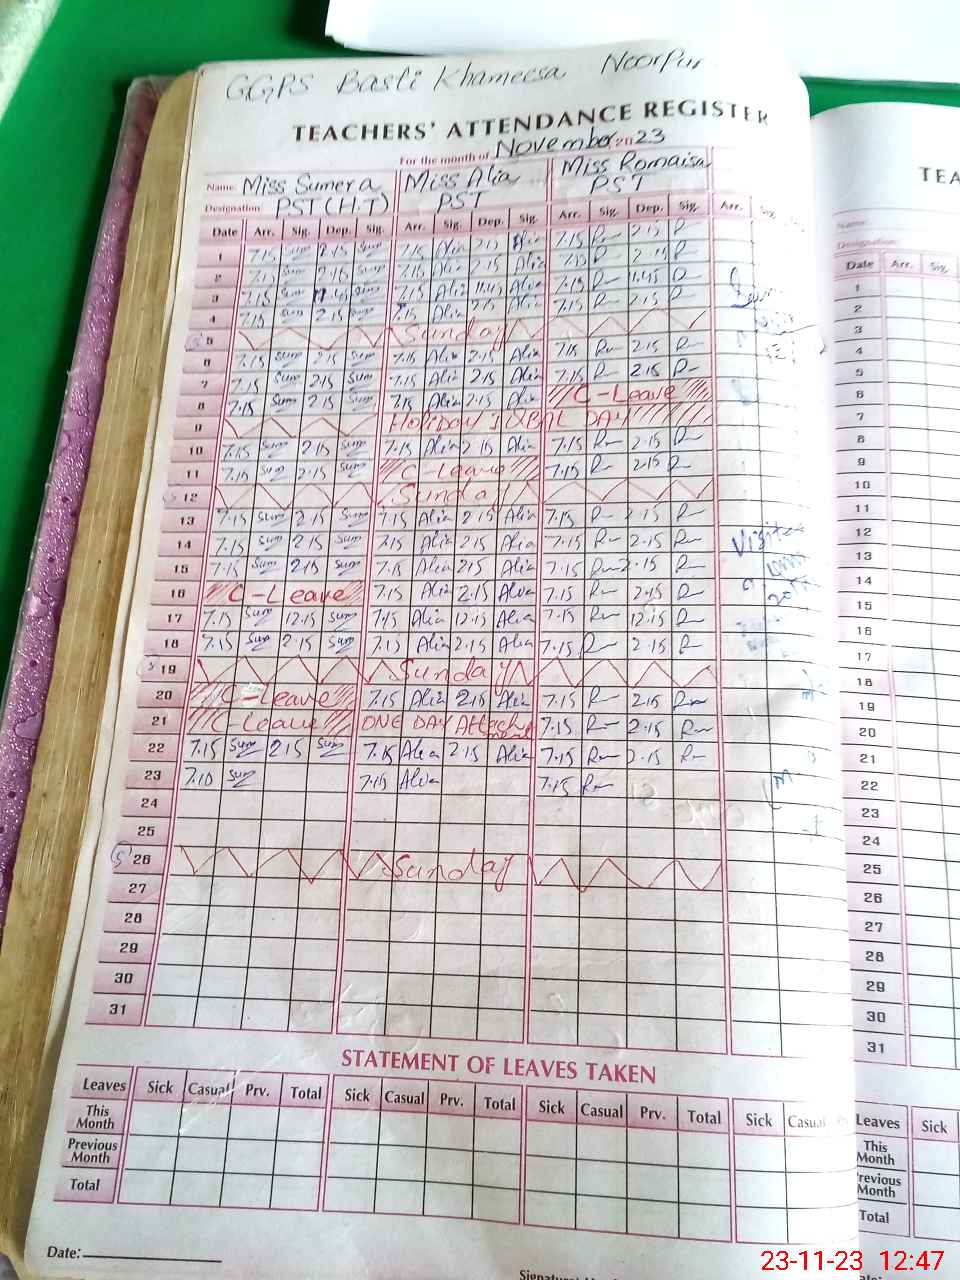 GGPS Basti Khameesa Noorpur
TEACHERS' ATTENDANCE REGISTER
For the month of November 2023
Name: Miss Sumera Miss Alia Miss Romaisa
Designation: PST (H.T) PST PST
Date Arr. Sig. Dep. Sig. Arr. Sig. Dep. Sig. Arr. Sig. Dep. Sig. Arr.
1 7.15 Sum 2.15 Sum 7.15 Alia 2.15 Alia 7.15 R 2.15 R
2 7.15 Sum 2.15 Sum 7.15 Alia 2.15 Alia 7.15 R 2.15 R
3 7.15 Sum Sum 7.15 Alia 11.45 Alia 7.15 R 11.45 R
4 7.15 Sum 2.15 Sum 7.15 Alia 2.15 Alia 7.15 R 2.15 R
5 Sunday
6 7.15 Sum 2.15 Sum 7.15 Alia 2.15 Alia 7.15 R 2.15 R
7 7.15 Sum 2.15 Sum 7.15 Alia 2.15 Alia 7.15 R 2.15 R
8 7.15 Sum 2.15 Sum 7.15 Alia 2.15 Alia C-Leave
9 HOLIDAY IQBAL DAY
10 7.15 Sum 2.15 Sum 7.15 Alia 2.15 Alia 7.15 R 2.15 R
11 7.15 Sum 2.15 Sum C-Leave 7.15 R 2.15 R
12 Sunday
13 7.15 Sum 2.15 Sum 7.15 Alia 2.15 Alia 7.15 R 2.15 R
14 7.15 Sum 2.15 Sum 7.15 Alia 2.15 Alia 7.15 R 2.15 R
15 7.15 Sum 2.15 Sum 7.15 Alia 2.15 Alia 7.15 R 2.15 R
16 C-Leave 7.15 Alia 2.15 Alia 7.15 R 2.15 R
17 7.15 Sum 12.15 Sum 7.15 Alia 12.15 Alia 7.15 R 12.15 R
18 7.15 Sum 2.15 Sum 7.15 Alia 2.15 Alia 7.15 R 2.15 R
19 Sunday
20 C-Leave 7.15 Alia 2.15 Alia 7.15 R 2.15 R
21 C-Leave ONE DAY 7.15 R 2.15 R
22 7.15 Sum 2.15 Sum 7.15 Alia 2.15 Alia 7.15 R 2.15 R
23 7.10 Sum 7.15 Alia 7.15 R
24
25
26 Sunday
27
28
29
30
31
STATEMENT OF LEAVES TAKEN
Leaves Sick Casual Prv. Total Sick Casual Prv. Total Sick Casual Prv. Total Sick Casual
This Month
Previous Month
Total
Date:
TEA
Name:
Designation:
Date Arr. Sig.
1
2
3
4
5
6
7
8
9
10
11
12
13
14
15
16
17
18
19
20
21
22
23
24
25
26
27
28
29
30
31
Leaves Sick
This Month
Previous Month
Total
23-11-23 12:47